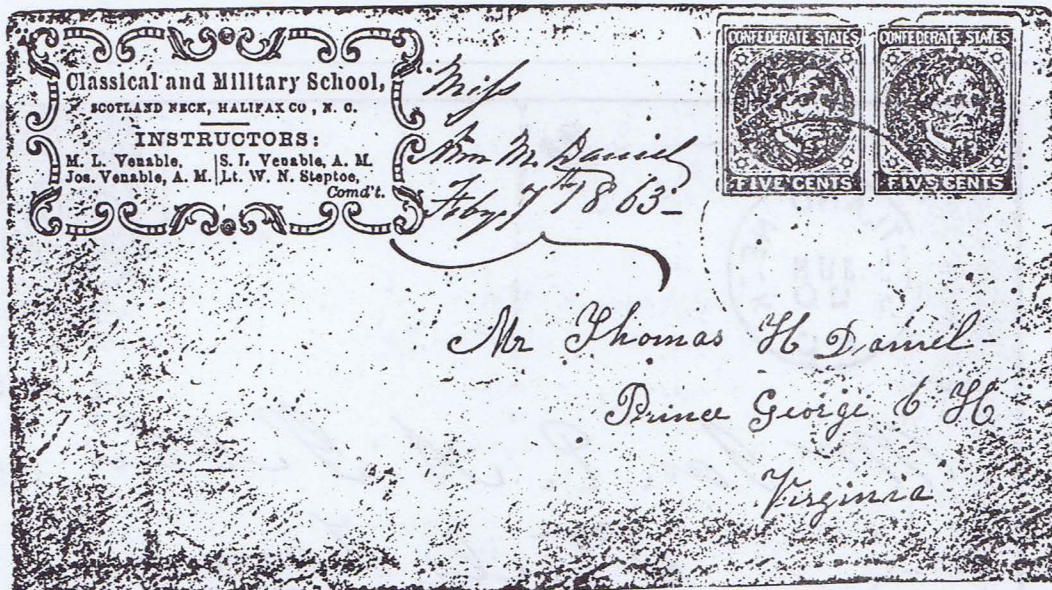 Classical and Military School,
SCOTLAND NECK, HALIFAX CO, N. C.
INSTRUCTORS:
M. L. Venable, S. L. Venable, A. M.
Jos. Venable, A. M. Lt. W. N. Steptoe,
Comd't.
Miss
M. Daniel
Feby 7th 1863-
CONFEDERATE STATES
FIVE CENTS
CONFEDERATE STATES
FIVE CENTS
Mr Thomas H Daniel-
Prince George C H
Virginia